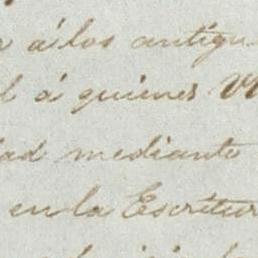 a á los antigu
l á quienes V
dad mediante
en la Escritur